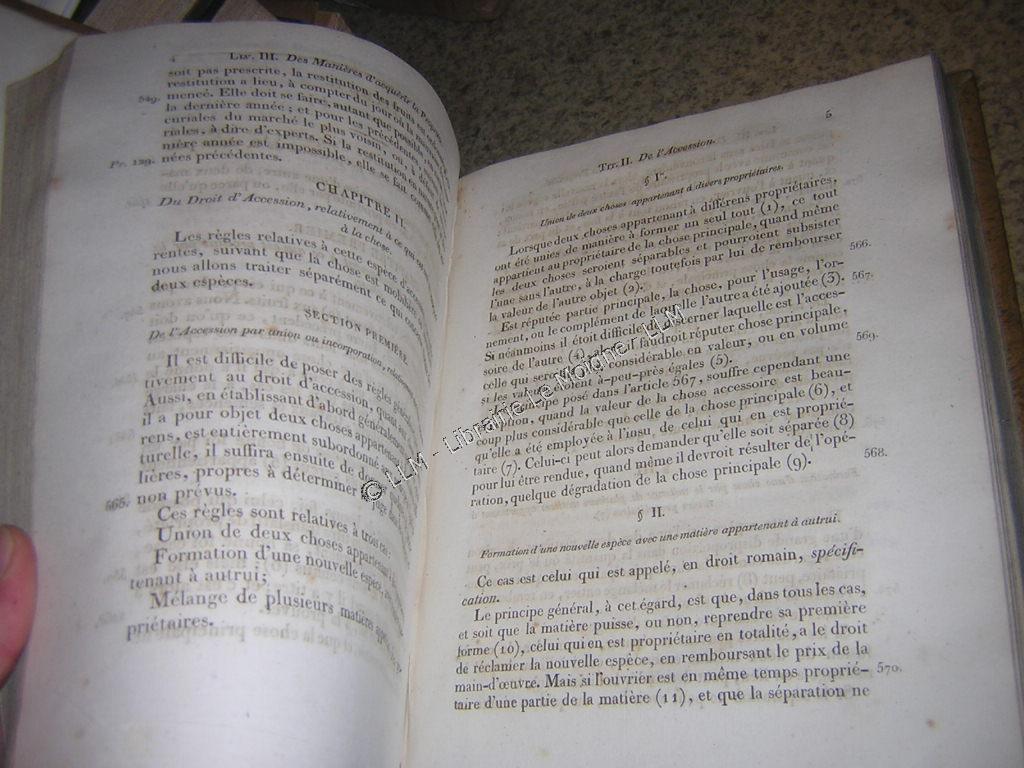 4 Liv. III. Des Manières d'acquérir la
soit pas prescrite, la restitution des fruits
restitution a lieu, à compter du jour où la
549. mencé. Elle doit se faire, autant que
la dernière année; et pour les précédentes,
curiales du marché le plus voisin, ou, à
riales, à dire d'experts. Si la restitution en
mière année est impossible, elle se fait comme
Pr. 129. nées précédentes.
CHAPITRE II.
Du Droit d'Accession, relativement à ce qui
à la chose.
Les règles relatives à cette espèce
rentes, suivant que la chose est mobilière
nous allons traiter séparément ce qui
deux espèces.
SECTION PREMIÈRE.
De l'Accession par union ou incorporation,
Il est difficile de poser des règles
tivement au droit d'accession, quant
Aussi, en établissant d'abord généralement
il a pour objet deux choses
rens, est entièrement subordonné
turelle, il suffira ensuite de
lières, propres à déterminer le juge dans
565. non prévus.
Ces règles sont relatives à trois
Union de deux choses
Formation d'une nouvelle espèce
tenant à autrui;
Mélange de plusieurs matières
priétaires.
5
Tit. II. De l'Accession.
§ Ier.
Union de deux choses appartenant à divers propriétaires.
Lorsque deux choses appartenant à différens propriétaires,
ont été unies de manière à former un seul tout (1), ce tout
appartient au propriétaire de la chose principale, quand même
les deux choses seroient séparables et pourroient subsister
l'une sans l'autre, à la charge toutefois par lui de rembourser 566.
la valeur de l'autre objet (2).
Est réputée partie principale, la chose, pour l'usage, l'or-
nement, ou le complément de laquelle l'autre a été ajoutée (3). 567.
Si néanmoins il étoit difficile de discerner laquelle est l'acces-
soire de l'autre (4), il faudroit réputer chose principale,
celle qui seroit considérable en valeur, ou en volume
si les valeurs étoient à-peu-près égales (5). 569.
principe posé dans l'article 567, souffre cependant une
exception, quand la valeur de la chose accessoire est beau-
coup plus considérable que celle de la chose principale (6), et
qu'elle a été employée à l'insu de celui qui en est proprié-
taire (7). Celui-ci peut alors demander qu'elle soit séparée (8)
pour lui être rendue, quand même il devroit résulter de l'opé- 568.
ration, quelque dégradation de la chose principale (9).
§ II.
Formation d'une nouvelle espèce avec une matière appartenant à autrui.
Ce cas est celui qui est appelé, en droit romain, spécifi-
cation.
Le principe général, à cet égard, est que, dans tous les cas,
et soit que la matière puisse, ou non, reprendre sa première
forme (10), celui qui en est propriétaire en totalité, a le droit
de réclamer la nouvelle espèce, en remboursant le prix de la
main-d'œuvre. Mais si l'ouvrier est en même temps proprié- 570.
taire d'une partie de la matière (11), et que la séparation ne
© LLM - Librairie Le Moigne, LLM